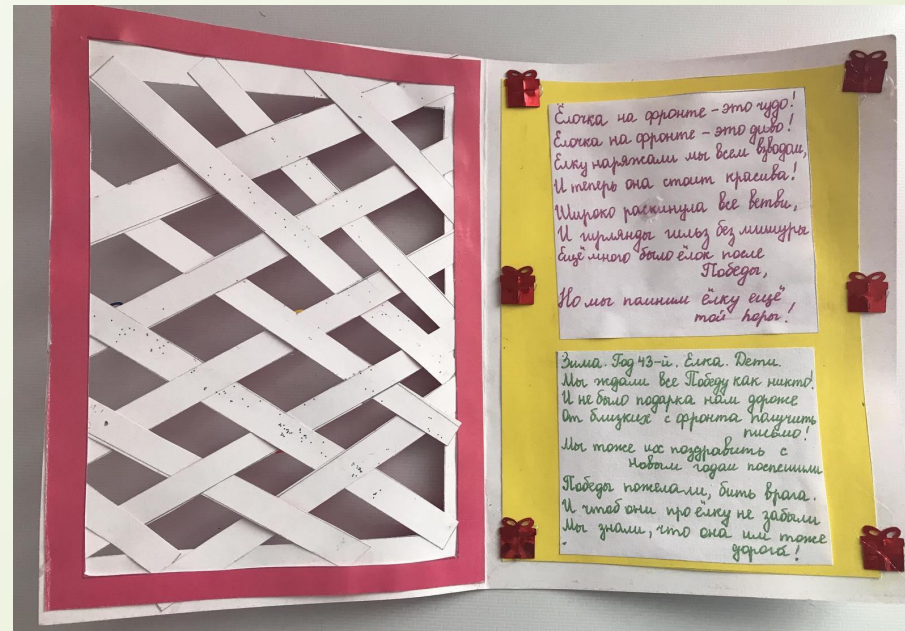 Ёлочка на фронте – это чудо!
Елочка на фронте – это диво!
Елку наряжали мы всем взводом,
И теперь она стоит красива!
Широко раскинула все ветви,
И гирлянды гильз без мишуры
Ещё много было ёлок после
Победы,
Но мы помним ёлку ещё
той поры!
Зима. Год 43-й. Елка. Дети.
Мы ждали все Победу как никто!
И не было подарка нам дороже
От близких с фронта получить
письмо!
Мы тоже их поздравить с
новым годом поспешили
Победы пожелали, бить врага.
И чтоб они про ёлку не забыли
Мы знали, что она им тоже
дорога!